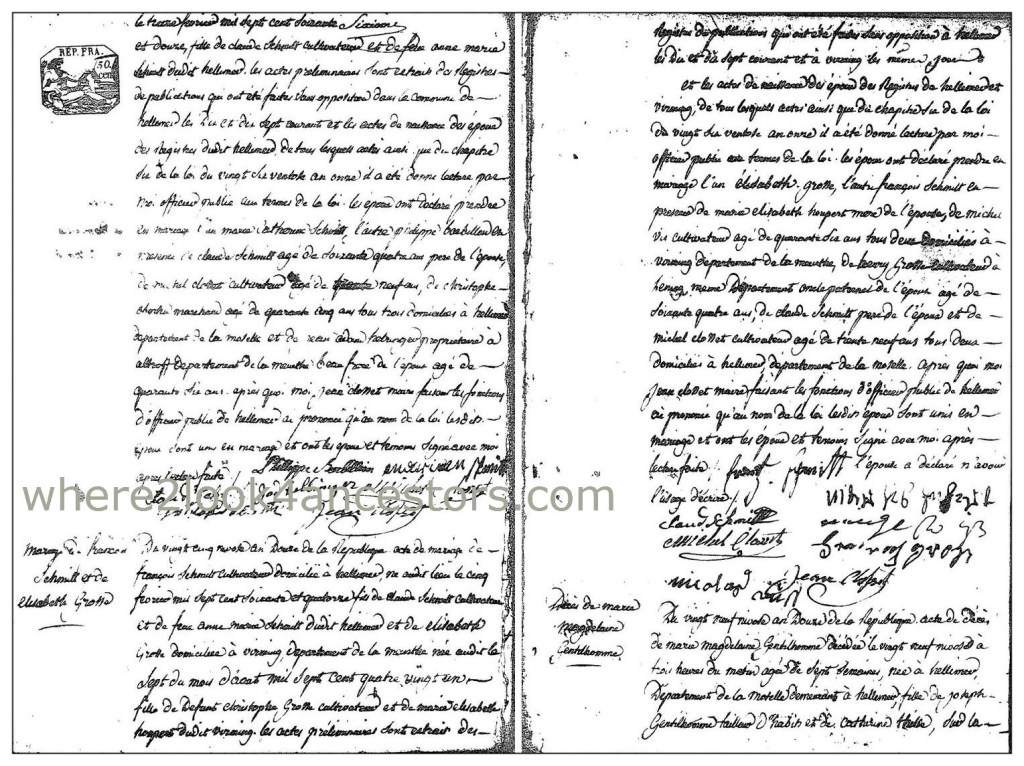 REP. FRA.
50.
cen
le treze fevrier mil sept cent soixante
et douze, fille de claude Schmitt Cultivateur et de feue anne marie
Schmitt dudit hellemer. les actes preliminaires sont extraits des Registres
de publications qui ont été faites sans opposition dans la commune de
hellemer les Dix et dix Sept courants et les actes de naissance des époux
des Registres dudit hellemer, de tous lesquels actes ainsi que du chapitre
Six de la loi du vingt six ventose an onze il a été donné lecture par
moi officier public aux termes de la loi. les époux ont declaré prendre
en mariage l'un marie Catherine Schmitt, l'autre philippe barbillon en
presence de claude Schmitt agé de soixante quatre ans pere de l'épouse,
de michel closset cultivateur agé de neuf ans, de christophe
marchand agé de quarante cinq ans tous trois domiciliés à hellemer
departement de la moselle et de proprietaire à
altroff departement de la meurthe beau frere de l'époux agé de
quarante six ans. après quoi moi, jean closset maire faisant les fonctions
d'officier public de hellemer ai prononcé qu'au nom de la loi lesdits
époux sont unis en mariage et ont les époux et temoins signé avec moi
après lecture faite
where2look4ancestors.com
jean Closset
mariage de francois
Schmitt et de
Elisabeth Grosse
Du vingt cinq nivose an Douze de la Republique acte de mariage de
françois Schmitt Cultivateur domicilié à hellemer, né audit lieu le cinq
fevrier mil sept cent soixante et quatorze fils de claude Schmitt Cultivateur
et de feue anne marie Schmitt dudit hellemer et de elisabeth
Grosse domiciliée à virming, departement de la meurthe née audit le
sept du mois d'aoat mil sept cent quatre vingt un,
fille de Defunt christophe Grosse cultivateur et de marie elisabethe
houpert dudit virming. les actes préliminaires sont extraits des
Registres de publications qui ont été faites sans opposition à hellemer
les dix et dix sept courant et à virming les mème jour
et les actes de naissance des époux des Registres de hellemer et
virming, de tous lesquels actes ainsi que du chapitre six de la loi
du vingt six ventose an onze il a été donné lecture par moi
officier public aux termes de la loi. les époux ont declaré prendre en
mariage l'un élisabeth grosse, l'autre françois Schmitt en
presence de marie elisabeth houpert mere de l'épouse, de michel
cultivateur agé de quarante six ans tous deux domiciliés à
virming departement de la meurthe, de Grosse Cultivateur à
meme departement oncle paternel de l'épouse agé de
soixante quatre ans, de claude Schmitt pere de l'époux et de
michel closset cultivateur agé de trente neuf ans tous deux
domiciliés à hellemer, departement de la moselle. après quoi moi
jean closset maire faisant les fonctions d'officier public de hellemer
ai prononcé qu'au nom de la loi lesdits époux sont unis en
mariage et ont les époux et temoins signé avec moi après
lecture faite. l'épouse a déclaré n'avoir
l'usage décrire
claude Schmitt
Michel Closset
jean Closset
nicolas
Décès de marie
magdelaine
Gentilhomme
Du vingt neuf nivose an Douze de la Republique acte de Décès
de marie magdelaine Gentilhomme décédée le vingt neuf nivose à
trois heures du matin agée de sept semaines, née à hellemer,
Departement de la moselle demeurant à hellemer, fille de joseph
Gentilhomme tailleur d'habits et de catherine sur la